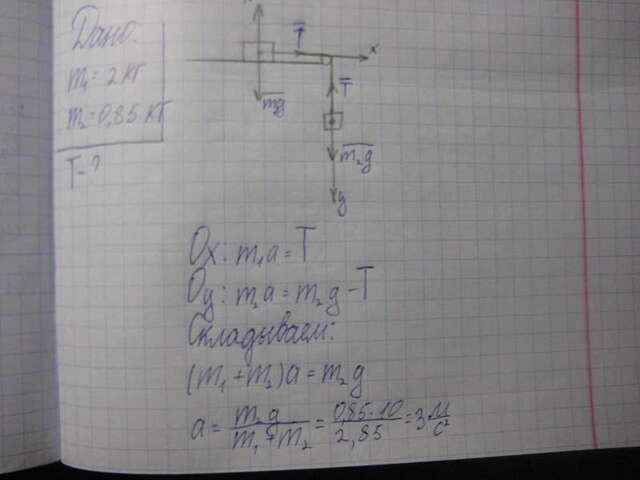 Дано:
m₁ = 2 кг
m₂ = 0,85 кг
T - ?
T
x
T
mg
m₂g
y
Ox: m₁a = T
Oy: m₂a = m₂g - T
Складываем:
(m₁ + m₂)a = m₂g
a = m₂g / m₁ + m₂ = 0,85·10 / 2,85 = 3 м/с²